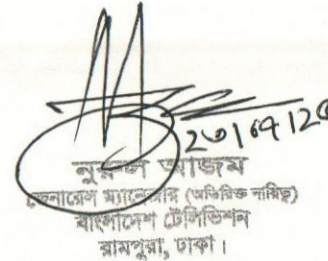 নুরুল আজম
জেনারেল ম্যানেজার (অতিরিক্ত দায়িত্ব)
বাংলাদেশ টেলিভিশন
রামপুরা, ঢাকা।